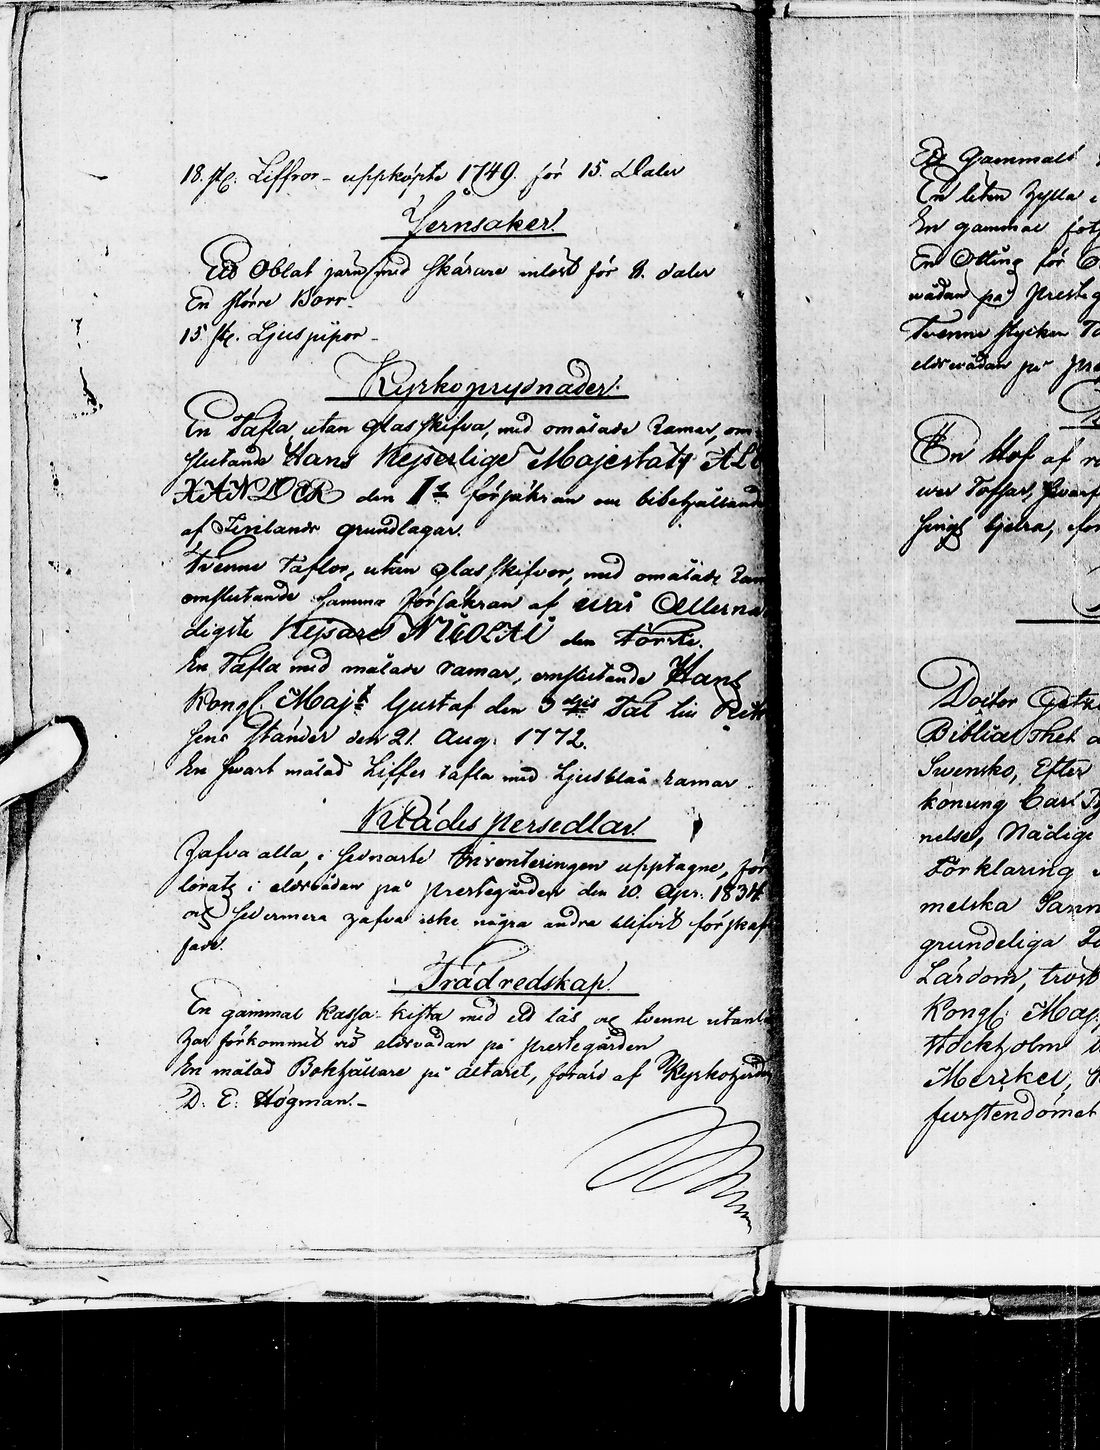 18. st. Liffror uppköpte 1749. för 15. Daler
Jernsaker.
Ett Oblat järn med skärare inlöst för 8. daler
En större Borr.
15 st. Ljuspipor
Kyrkoprydnader.
En Tafla utan glasskifva, med omålade Ramar, om-
slutande Hans Kejserlige Majestäts ALE
XANDER den 1ste försäkran om bibehållande
af Finlands grundlagar.
Tvenne Taflor, utan glasskifvor, med omålade Ram
omslutande samma försäkran af wår Allernå
digste Kejsare NICOLAI den förste.
En Tafla med målade ramar, omslutande Hans
Kongl. Majts Gustaf den 3djes Tal till Riks
sens Ständer den 21. Aug. 1772.
En svart målad Siffer tafla med Ljusblåa ramar
Klädes persedlar.
Hafva alla, i senaste Inventeringen upptagne, för
lorats i eldsvådan på prestegården den 20. Apr. 1834
och sedermera hafva icke några andra blifvit förskaf
fade.
Trädredskap.
En gammal Kassa-kista med ett lås och tvenne utanl
har förkommit vid eldsvådan på prestegården
En målad Bokhållare på altaret, förärd af Kyrkoherden
D. E. Högman.
Ett Gammalt
En liten
En gammal
En Otting för
vådan på Presteg
Tvenne stycken
eldsvådan på pre
En Mässf af
Doctor
Biblia Thet
Swensko, Efter
konung Carl
nelse, Nådige
Förklaring
melska Sann
grundeliga
Lärdom, tröst
Kongl. Maj:
Stockholm
Merckel,
furstendömet